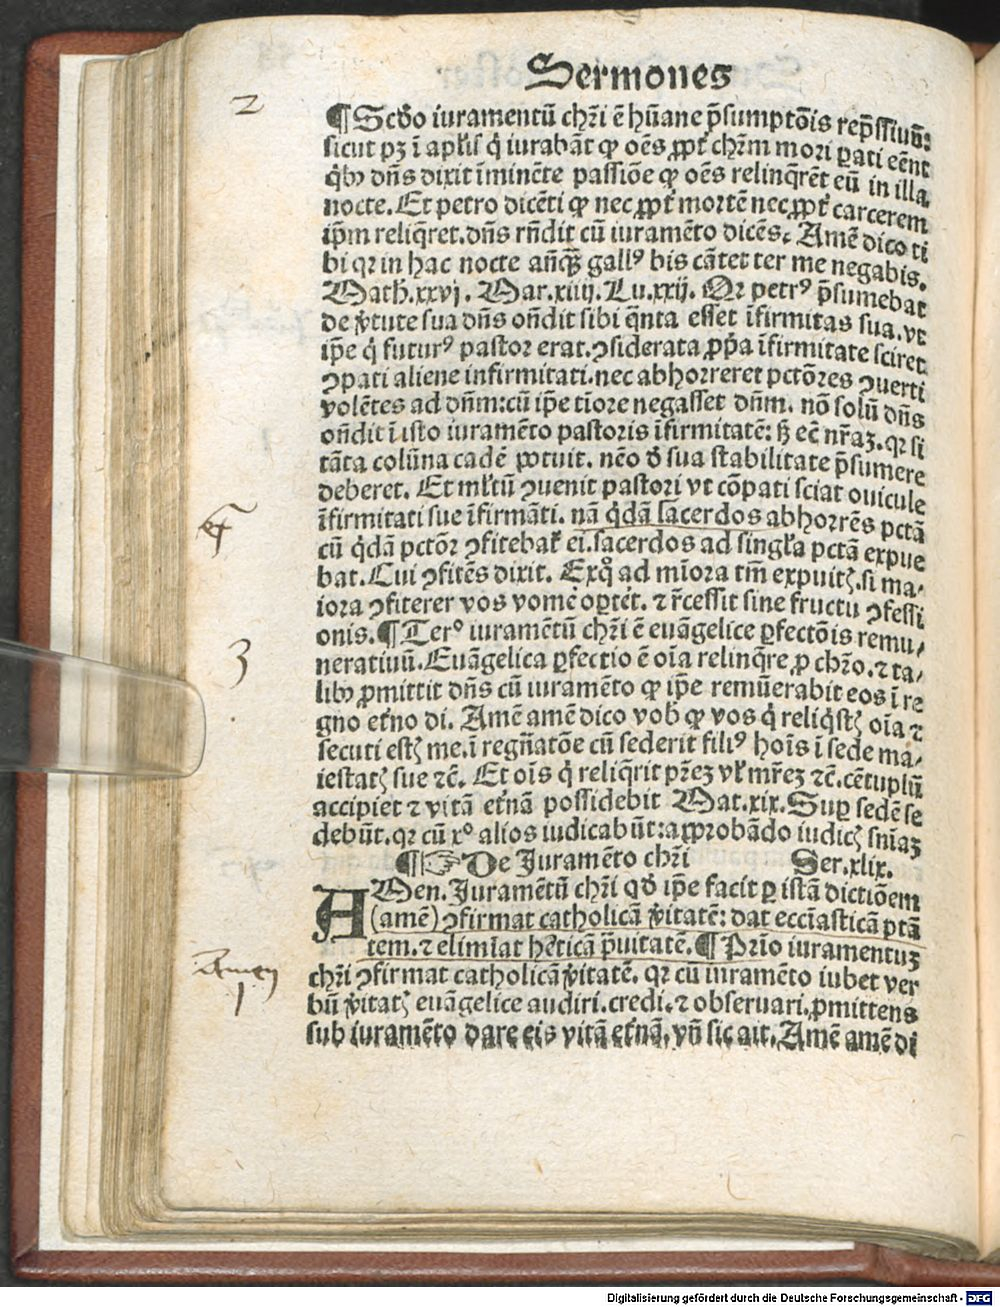 Sermones
2
¶ Scd̓o iuramentū chr̄i ē hūane p̄sumptōis rep̄ssiuū:
sicut pꝫ ī apl̓is q̇ iurabāt ꝙ oēs ꝓpt̓ chr̄m mori ꝑati eēnt
q̇bꝰ dn̄s dixit īminēte passiōe ꝙ oēs relinq̄rēt eū in illa
nocte. Et petro dicēti ꝙ nec ꝓpt̓ mortē nec ꝓpt̓ carcerem
ip̄m reliq̄ret. dn̄s rn̄dit cū iuramēto dicēs. Amē dico ti
bi qꝛ in hac nocte an̄qꝫ̄ gallꝰ bis cātet ter me negabis.
Math̄. xxvj. Mar. xiiij. Lu. xxij. Qꝛ petrꝰ p̄sumebat
de v̓tute sua dn̄s on̄dit sibi q̄nta esset īfirmitas sua. vt
ip̄e q̇ futurꝰ pastor erat. ꝯsiderata ꝓp̄a īfirmitate sciret
ꝯpati aliene infirmitati. nec abhorreret pctōres ꝯuerti
volētes ad dn̄m: cū ip̄e tīore negasset dn̄m. nō solū dn̄s
on̄dit ī isto iuramēto pastoris īfirmitatē: sꝫ eē nr̄aꝫ. qꝛ si
tāta colūna cadē potuit. nēo d̓ sua stabilitate p̄sumere
deberet. Et ml̓tū ꝯuenit pastori vt cōpati sciat ouicule
īfirmitati sue īfirmāti. nā q̇dā sacerdos abhorrēs pctā
cū q̇dā pctōr ꝯfitebat̓ ei. sacerdos ad singl̓a pctā expue
bat. Cui ꝯfitēs dixit. Exq̊ ad mīora tm̄ expuitꝭ. si ma⸗
iora ꝯfiterer vos vomē oꝑtet. ⁊ r̄cessit sine fructu ꝯfessi
onis. ¶ Terº iuramētū chr̄i ē euāgelice ꝑfectōis remu⸗
3
neratiuū. Euāgelica ꝑfectio ē oīa relinq̄re ꝓ chr̄o. ⁊ ta⸗
libꝰ ꝓmittit dn̄s cū iuramēto ꝙ ip̄e remūerabit eos ī re
gno et̓no di. Amē amē dico vob̄ ꝙ vos q̇ reliq̇stꝭ oīa ⁊
secuti estꝭ me. ī regn̄atōe cū sederit filiꝰ hoīs ī sede ma⸗
iestatꝭ sue ⁊cē. Et oīs q̇ reliq̄rit pr̄eꝫ vl̓ mr̄eꝫ ⁊cē. cētuplū
accipiet ⁊ vitā et̓nā possidebit Mat. xix. Suꝑ sedē se
debūt. qꝛ cū xº alios iudicabūt: aꝓbādo iudicꝭ sn̄iaꝫ
¶ ☞ De Iuramēto chr̄i Ser. xlix.
AMen. Iuramētū chr̄i qd̓ ip̄e facit ꝑ istā dictiōem
(amē) ꝯfirmat catholicā v̓itatē: dat eccīasticā ptā
tem. ⁊ elimīat hētīcā p̄uitatē. ¶ Prīo iuramentuꝫ
Amen
1
chr̄i ꝯfirmat catholicā v̓itatē. qꝛ cū iuramēto iubet ver
bū v̓itatꝭ euāgelice audiri. credi. ⁊ obseruari. ꝓmittens
sub iuramēto dare eis vitā et̓nā. vn̄ sic ait. Amē amē di
Digitalisierung gefördert durch die Deutsche Forschungsgemeinschaft - DFG